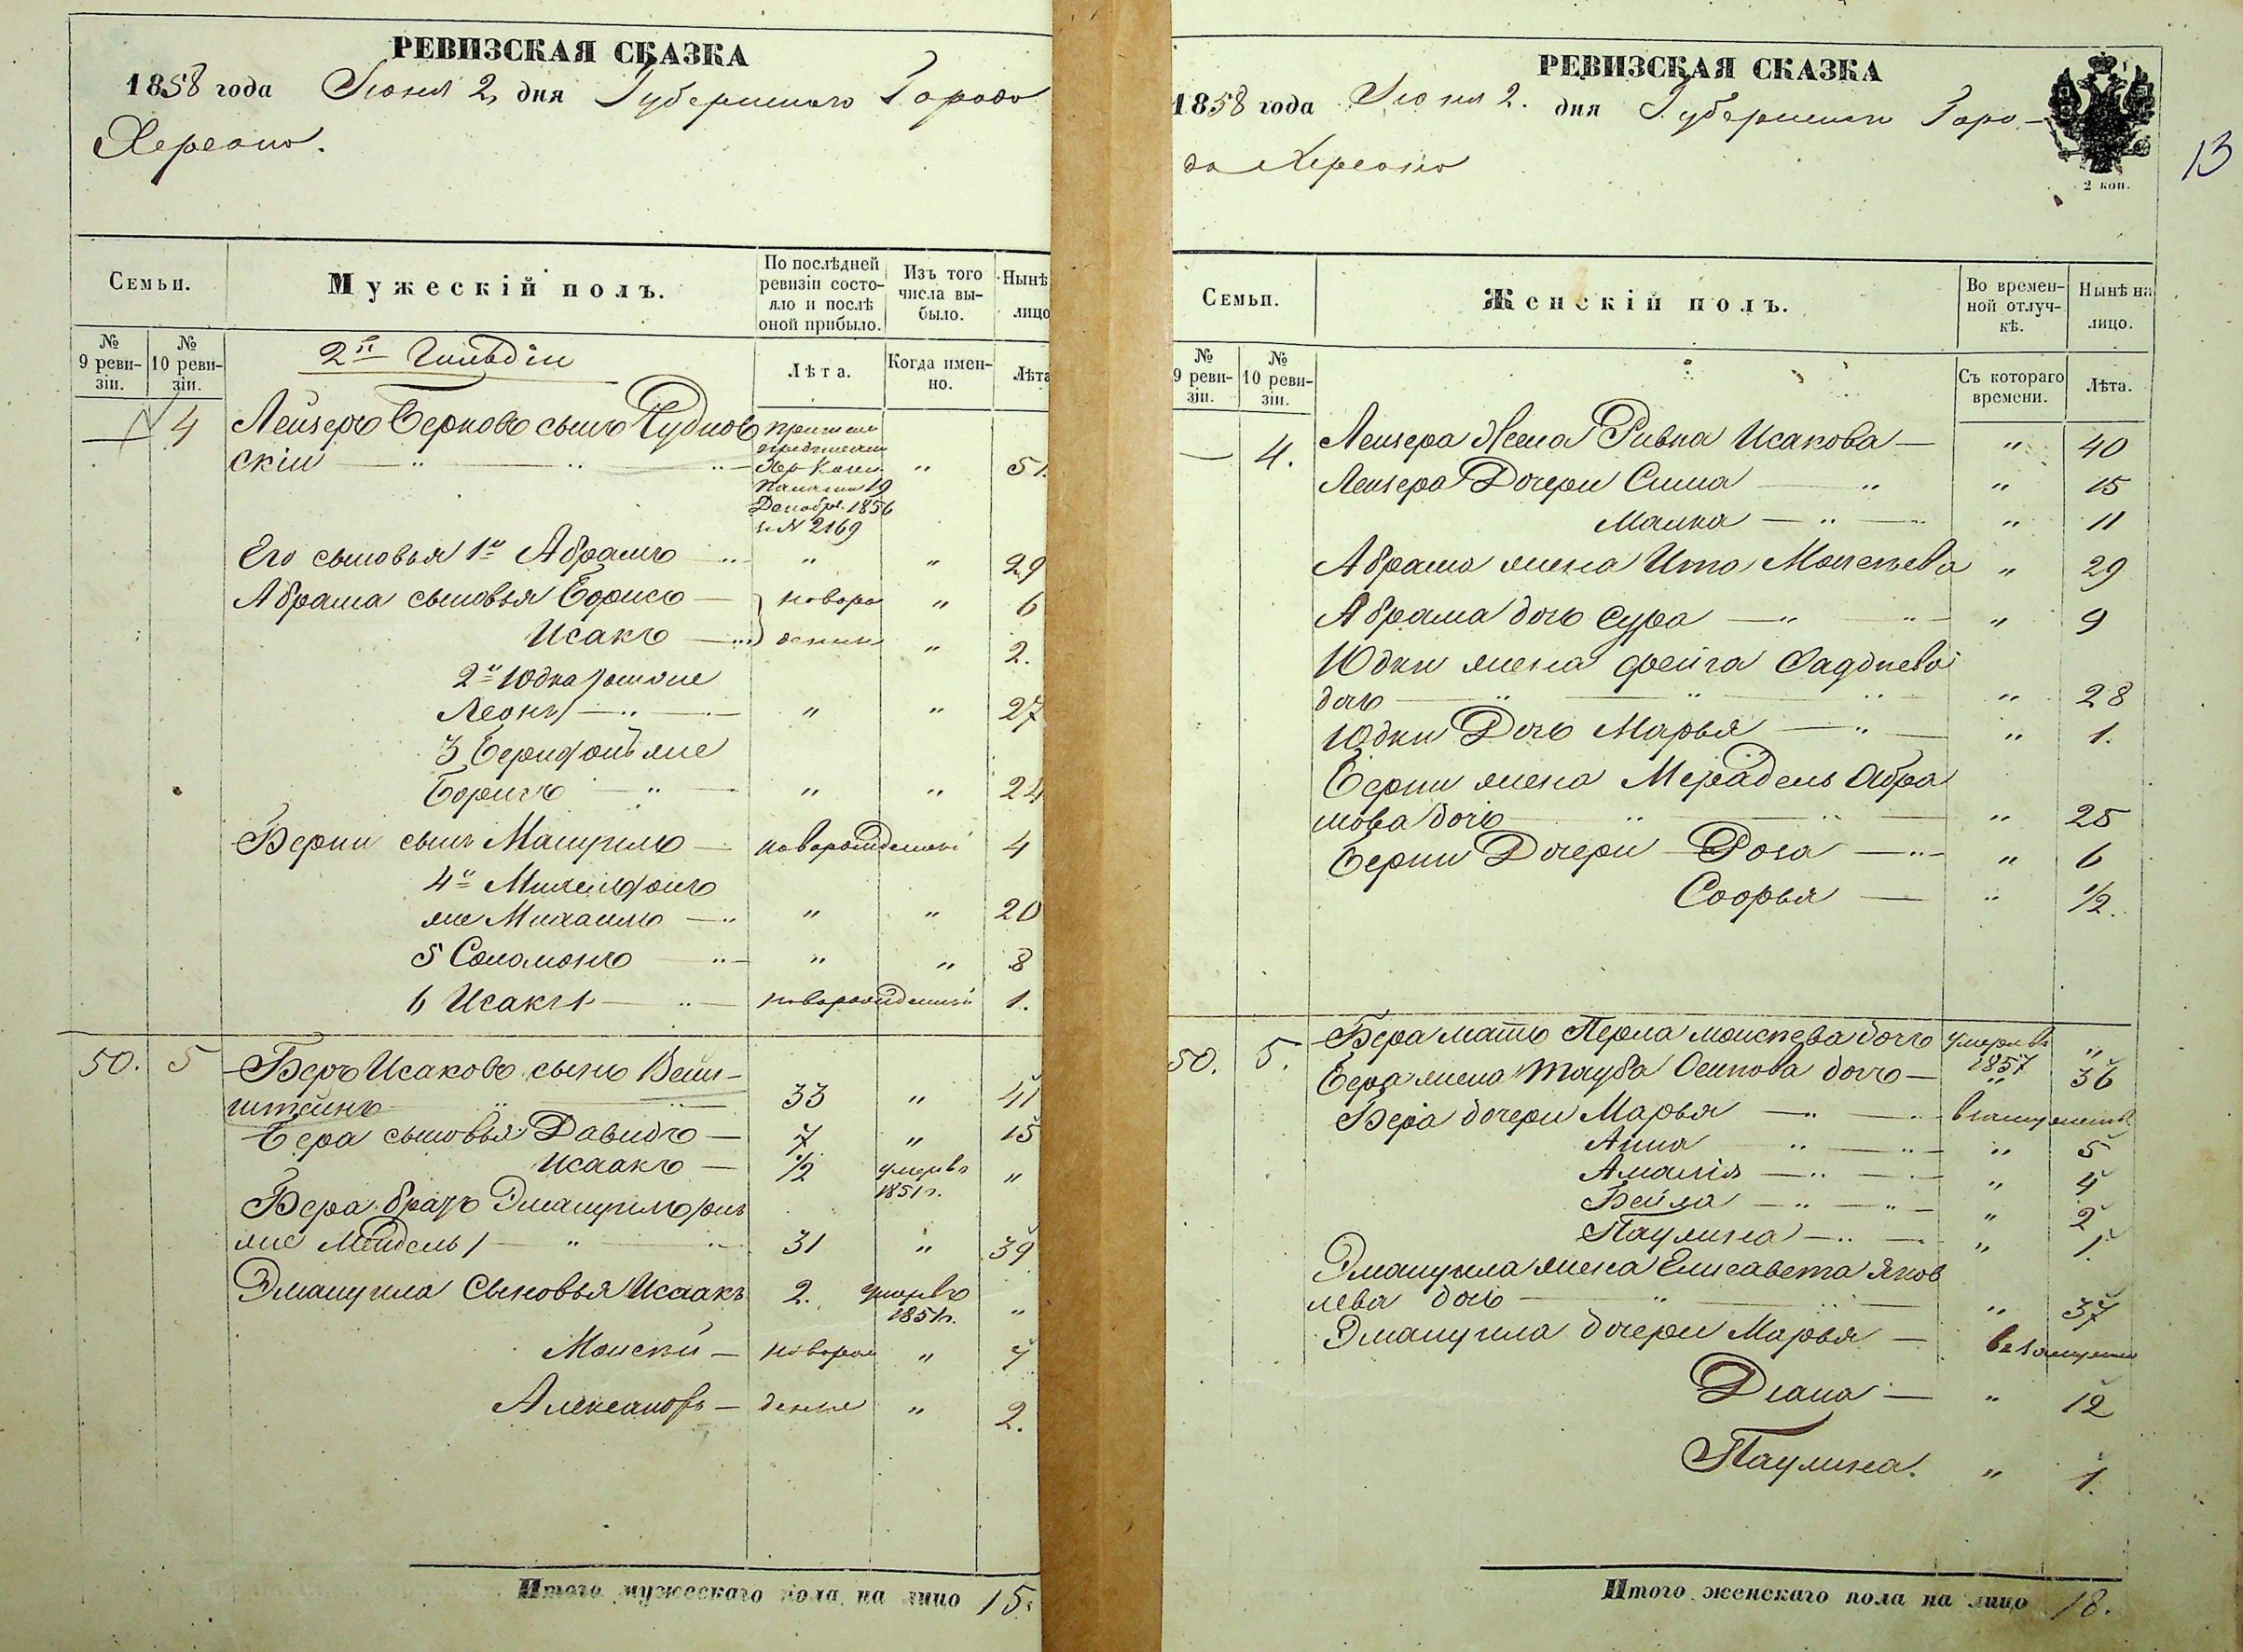 РЕВИЗСКАЯ СКАЗКА
1858 года Іюня 2 дня Губернскаго Города
Херсона.
Семьи.
Мужескій полъ.
По послѣдней ревизіи состояло и послѣ оной прибыло.
Изъ того числа выбыло.
Нынѣ лицо
№ 9 ревизіи.
№ 10 ревизіи.
2й Гильдіи
Лѣта.
Когда именно.
Лѣта
4 Лейзеръ Берковъ сынъ Чуднов
скій " " " " 51.
19
Декабря 1856
№ 2169
Его сыновья 1й Абрамъ " " 29
Абрама сыновья Борисъ новоро " 6
Исакъ " 2.
2й Юдка
Леонъ " " 27
3 Берка онъ же
Борисъ " " 24
Берки сынъ новорожденный 4
4й онъ
же Михаилъ " " 20
5 Соломонъ " " 8
6 Исакъ новорожденный 1.
50. 5 Беръ Исаковъ сынъ Вейн-
штейнъ 33 " 41
Бера сыновья Давидъ 7 " 15
Исаакъ 1/2 умеръ въ 1851 г. "
Бера братъ Эмануилъ онъ
же Мендель 31 " 39
Эмануила Сыновья Исаакъ 2. умеръ въ 1851 г. "
Моисей новорож " 7
Александръ денные " 2.
Итого мужескаго пола на лицо 15.
РЕВИЗСКАЯ СКАЗКА
1858 года Іюня 2. дня Губернскаго Горо-
да Херсона
2 коп.
13
Семьи.
Женскій полъ.
Во временной отлучкѣ.
Нынѣ на лицо.
№ 9 ревизіи.
№ 10 ревизіи.
Съ котораго времени.
Лѣта.
4. Лейзера Жена Ривка Исакова " 40
Лейзера Дочери Сима " 15
Малка " 11
Абрама жена Ита Моисеева " 29
Абрама дочь Сура " 9
Юдки жена Фейга
дочь " 28
Юдки Дочь Марья " 1.
Берки жена Абра
мова дочь " 25
Берки Дочери Роза " 6
Софья " 1/2.
50. 5. Бера мать Перла Моисеева дочь умерла въ 1857 "
Бера жена Тауба Осипова дочь " 36
Бера дочери Марья в замужеств
Анна " 5
Амалія " 4
Бейла " 2
Паулина " 1.
Эмануила жена Елисавета Яков
лева дочь " 37
Эмануила дочери Марья в замужеств
Діана " 12
Паулина. " 1.
Итого женскаго пола на лицо 18.